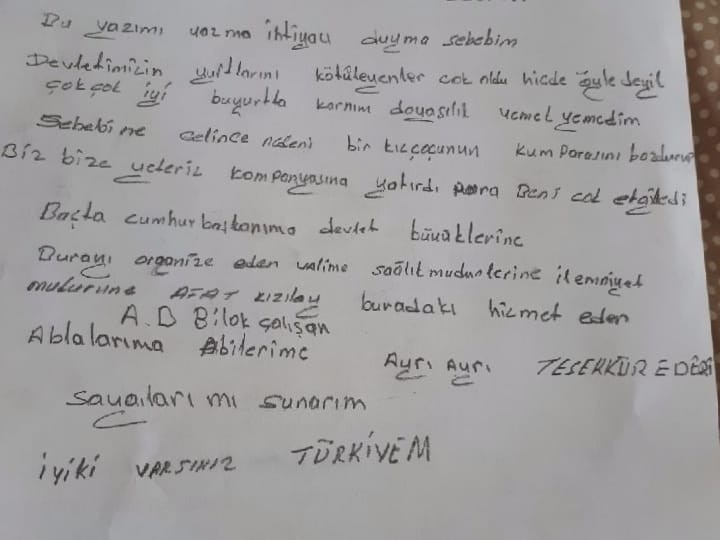 Bu yazımı yazma ihtiyacı duyma sebebim
Devletimizin yurtlarını kötüleyenler çok oldu hicde öyle deyil
çok çok iyi buyurtta karnım doyasılık yemek yemedim
Sebebine gelince nedeni bir kızçoçunun kumparasını bozdurup
Biz bize yeteriz kompanyasına yatırdı para Beni çok etgiledi
Başta cumhurbaşkanıma devlet büyüklerine
Burayı organize eden valime sağlık mudurlerine il emniyet
muturune AFAT Kızılay buradaki hizmet eden
A.B Bilok çalışan
Ablalarıma Abilerime
Ayrı Ayrı TEŞERKÜR EDERİ
saygıları mı sunarım
iyiki VARSINIZ TÜRKİYEM